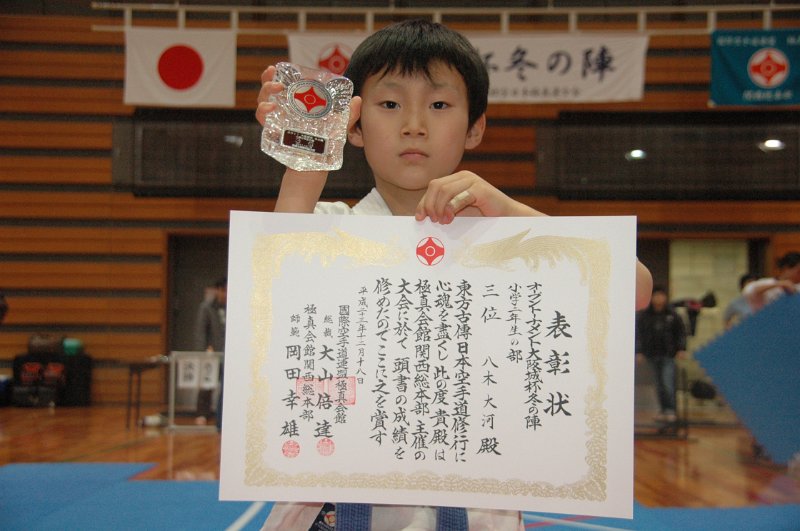 杯冬の陣
表彰状
オープントーナメント大阪城杯冬の陣
小学三年生の部
三位 八木大河殿
東方古傳日本空手道修行に
心魂を盡くし此の度貴殿は
極真会館関西総本部主催の
大会に於て頭書の成績を
修めたのでここに之を賞す
平成二十三年十二月十八日
國際空手道連盟極真会館
総裁 大山倍達
極真会館関西総本部
師範 岡田幸雄